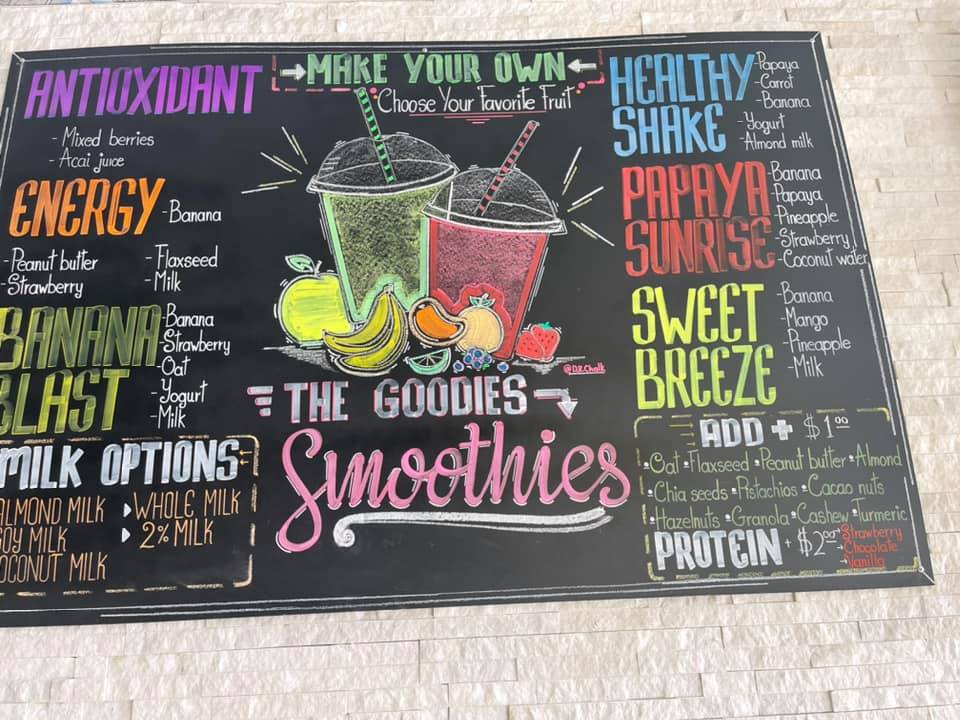 ANTIOXIDANT
- Mixed berries
- Acai juice
ENERGY
- Banana
- Peanut butter
- Strawberry
- Flaxseed
- Milk
BANANA
BLAST
- Banana
- Strawberry
- Oat
- Yogurt
- Milk
MILK OPTIONS
ALMOND MILK
SOY MILK
COCONUT MILK
WHOLE MILK
2% MILK
MAKE YOUR OWN
Choose Your Favorite Fruit
@D.R.Chalk
THE GOODIES
Smoothies
HEALTHY
SHAKE
- Papaya
- Carrot
- Banana
- Yogurt
- Almond milk
PAPAYA
SUNRISE
- Banana
- Papaya
- Pineapple
- Strawberry
- Coconut water
SWEET
BREEZE
- Banana
- Mango
- Pineapple
- Milk
ADD + $1.00
• Oat • Flaxseed • Peanut butter • Almond
• Chia seeds • Pistachios • Cacao nuts
• Hazelnuts • Granola • Cashew • Turmeric
PROTEIN + $2.00
Strawberry
Chocolate
Vanilla